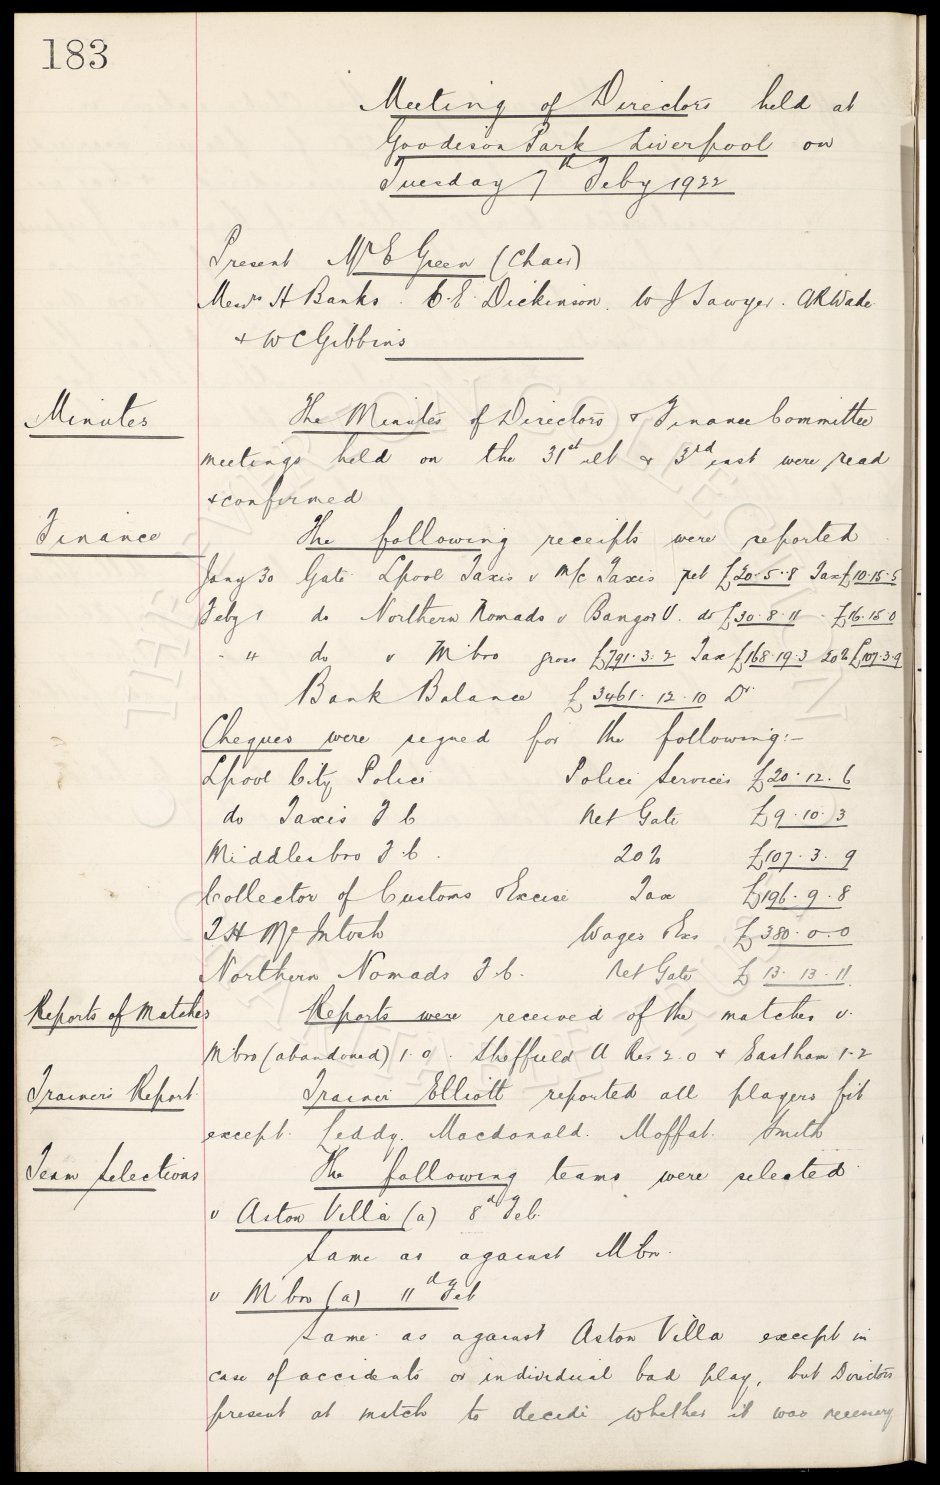 183
Meeting of Directors held at
Goodison Park Liverpool on
Tuesday 7th Feby 1922
Present Mr E Green (Chair)
Messrs H Banks. C.E. Dickinson. W J Sawyer. A R Wade
& W C Gibbins
Minutes The Minutes of Directors & Finance Committee
meetings held on the 31st ult & 3rd inst were read
& confirmed
Finance The following receipts were reported
Jany 30 Gate Lpool Taxis v M/c Taxis net £20.5.8 Tax £10.15.5
Feby 1 do Northern Nomads v Bangor U. do £30.8.11 - £16.15.0
" 4 do v M'bro gross £791.3.2 Tax £168.19.3 20% £107.3.9
Bank Balance £3461.12.10 Dr
Cheques were signed for the following:-
Lpool City Police Police Services £20.12.6
do Taxis F C Net Gate £9.10.3
Middlesbro F.C. 20% £107.3.9
Collector of Customs & Excise Tax £196.9.8
T H McIntosh Wages & Exs £380.0.0
Northern Nomads F.C. Net Gate £13.13.11
Reports of Matches Reports were received of the matches v.
M'bro (abandoned) 1.0. Sheffield U Res 2.0 & Eastham 1-2
Trainer's Report Trainer Elliott reported all players fit
except. Leddy. Macdonald. Moffat. Smith
Team Selections The following teams were selected
v Aston Villa (a) 8th Feb.
Same as against M'bro.
v M'bro (a) 11th Feb
Same as against Aston Villa except in
case of accidents or individual bad play, but Directors
present at match to decide whether it was necessary
THE EVERTON COLLECTION